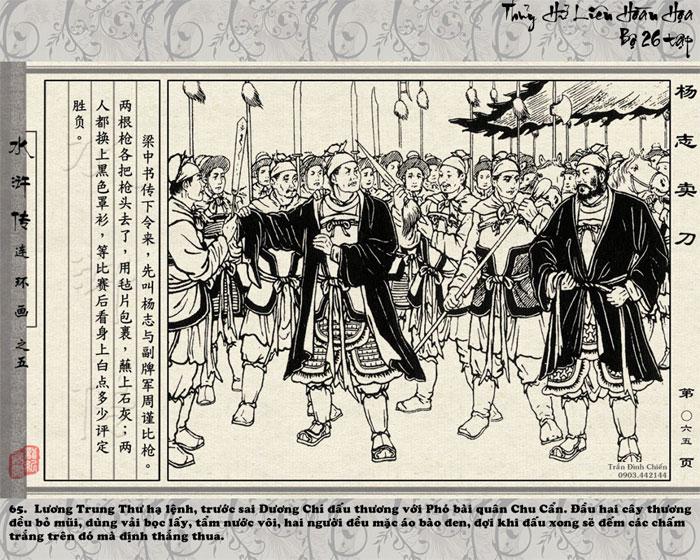 Thủy Hử Liên Hoàn Họa
Bộ 26 tập
杨志卖刀
第〇六五页
梁中书传下令来，先叫杨志与副牌军周谨比枪。
两根枪各把枪头去了，用毡片包裹，蘸上石灰；两
人都换上黑色罩衫，等比赛后看身上白点多少评定
胜负。
水浒传连环画之五
Trần Đình Chiến
0903.442144
65. Lương Trung Thư hạ lệnh, trước sai Dương Chí đấu thương với Phó bài quân Chu Cẩn. Đầu hai cây thương
đều bỏ mũi, dùng vải bọc lấy, tẩm nước vôi, hai người đều mặc áo bào đen, đợi khi đấu xong sẽ đếm các chấm
trắng trên đó mà định thắng thua.